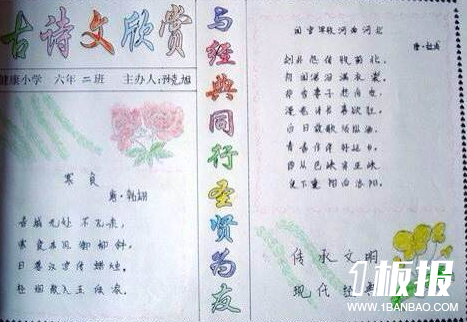 古诗文欣赏
健康小学 六年 二班 主办人:
寒食
唐·韩翃
春城无处不飞花,
寒食东风御柳斜。
日暮汉宫传蜡烛,
轻烟散入五侯家。
与经典同行圣贤为友
闻官军收河南河北
唐·杜甫
剑外忽传收蓟北,
初闻涕泪满衣裳。
却看妻子愁何在,
漫卷诗书喜欲狂。
白日放歌须纵酒,
青春作伴好还乡。
即从巴峡穿巫峡,
便下襄阳向洛阳。
传承文明
现代
1板报
WWW.1BANBAO.COM